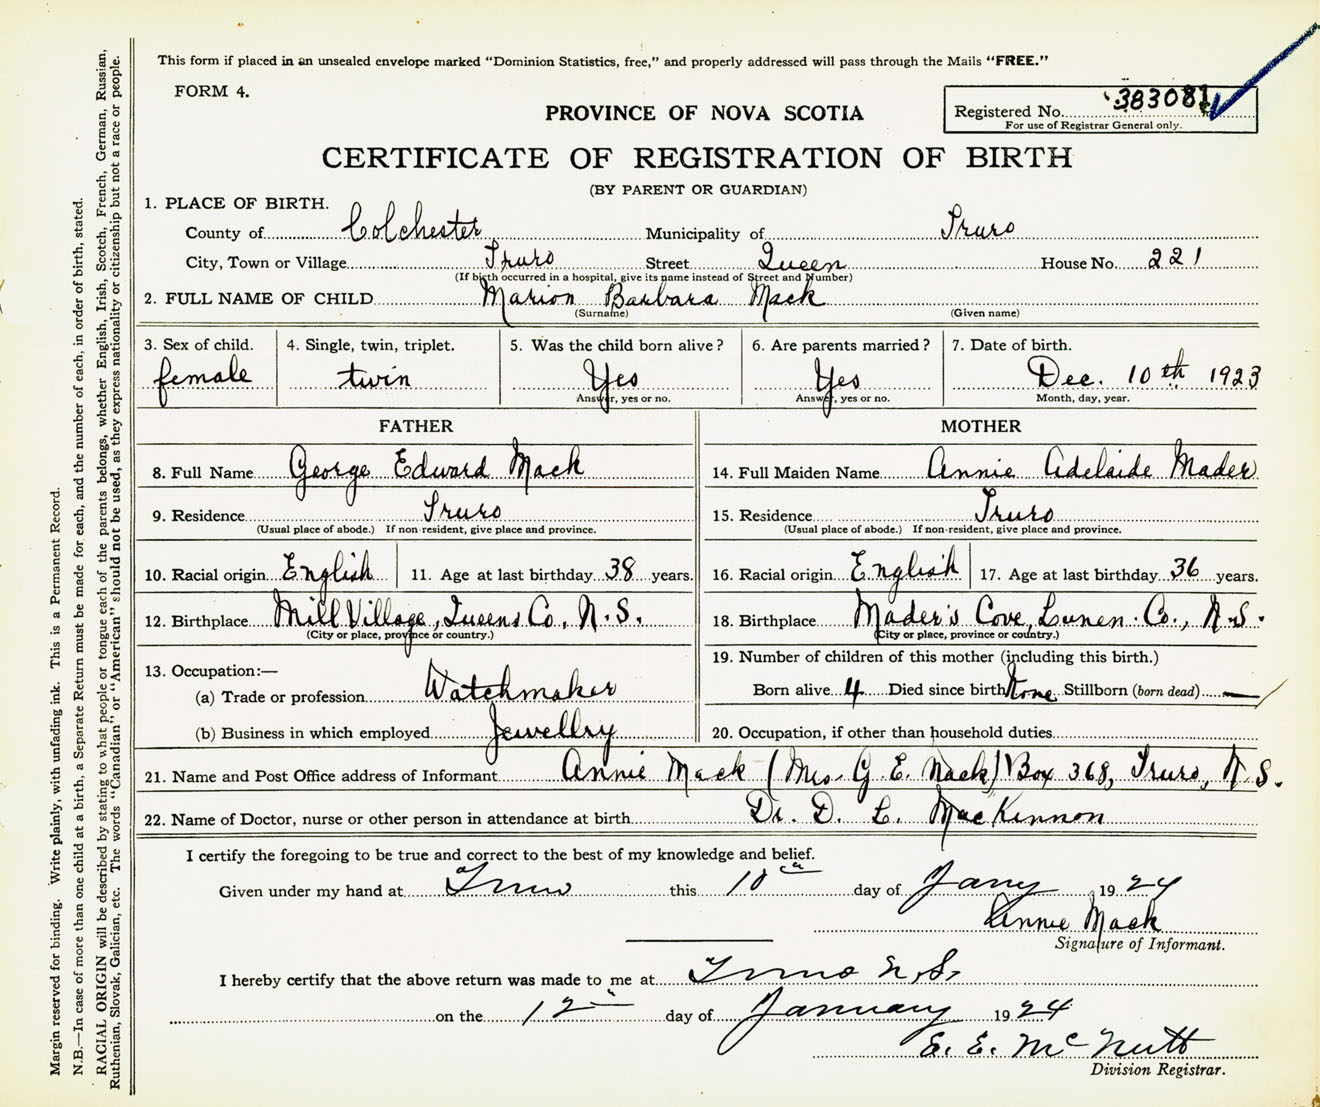 This form if placed in an unsealed envelope marked "Dominion Statistics, free," and properly addressed will pass through the Mails "FREE."
FORM 4.
Registered No. 383081
For use of Registrar General only.
PROVINCE OF NOVA SCOTIA
CERTIFICATE OF REGISTRATION OF BIRTH
(BY PARENT OR GUARDIAN)
1. PLACE OF BIRTH.
County of Colchester Municipality of Truro
City, Town or Village Truro Street Queen House No. 221
(If birth occurred in a hospital, give its name instead of Street and Number)
2. FULL NAME OF CHILD Marion Barbara Mack
(Surname) (Given name)
3. Sex of child. 4. Single, twin, triplet. 5. Was the child born alive? 6. Are parents married? 7. Date of birth.
female twin Yes Yes Dec. 10th 1923
Answer, yes or no. Answer, yes or no. Month, day, year.
FATHER MOTHER
8. Full Name George Edward Mack
9. Residence Truro
(Usual place of abode.) If non-resident, give place and province.
10. Racial origin English 11. Age at last birthday 38 years.
12. Birthplace Mill Village, Queens Co., N.S.
(City or place, province or country.)
13. Occupation:—
(a) Trade or profession Watchmaker
(b) Business in which employed Jewellry
14. Full Maiden Name Annie Adelaide Mader
15. Residence Truro
(Usual place of abode.) If non-resident, give place and province.
16. Racial origin English 17. Age at last birthday 36 years.
18. Birthplace Mader's Cove, Lunen. Co., N.S.
(City or place, province or country.)
19. Number of children of this mother (including this birth.)
Born alive 4 Died since birth None Stillborn (born dead) —
20. Occupation, if other than household duties
21. Name and Post Office address of Informant Annie Mack (Mrs. G. E. Mack) Box 368, Truro, N.S.
22. Name of Doctor, nurse or other person in attendance at birth Dr. D. L. MacKinnon
I certify the foregoing to be true and correct to the best of my knowledge and belief.
Given under my hand at Truro this 10th day of Jany 1924
Annie Mack
Signature of Informant.
I hereby certify that the above return was made to me at Truro N.S.
on the 12th day of January 1924
E. E. McNutt
Division Registrar.
Margin reserved for binding. Write plainly, with unfading ink. This is a Permanent Record.
N.B.—In case of more than one child at a birth, a Separate Return must be made for each, and the number of each, in order of birth, stated.
RACIAL ORIGIN will be described by stating to what people or tongue each of the parents belongs, whether English, Irish, Scotch, French, German, Russian,
Ruthenian, Slovak, Galician, etc. The words "Canadian" or "American" should not be used, as they express nationality or citizenship but not a race or people.